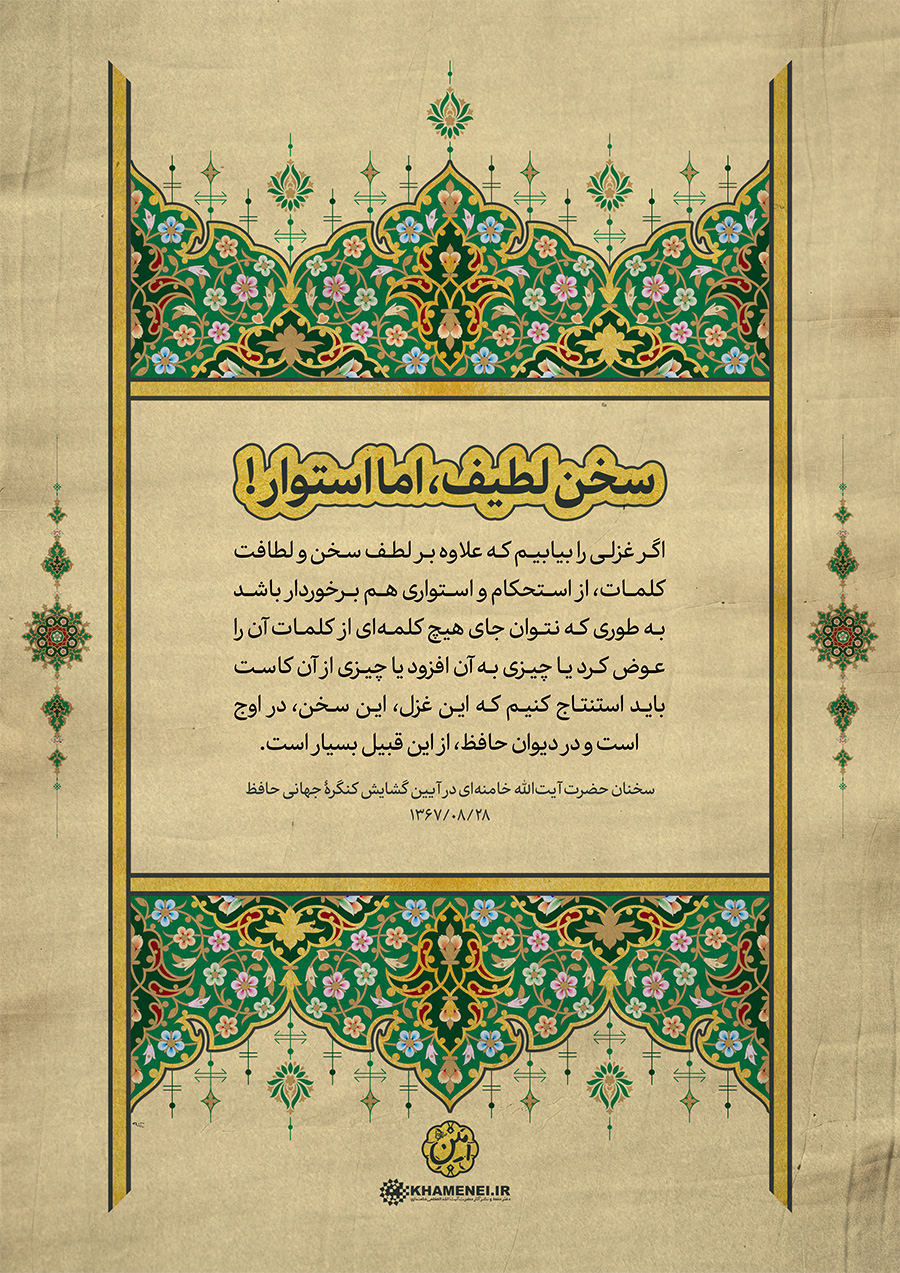 سخن لطیف، اما استوار!
اگر غزلی را بیابیم که علاوه بر لطف سخن و لطافت
کلمات، از استحکام و استواری هم برخوردار باشد
به طوری که نتوان جای هیچ کلمه‌ای از کلمات آن را
عوض کرد یا چیزی به آن افزود یا چیزی از آن کاست
باید استنتاج کنیم که این غزل، این سخن، در اوج
است و در دیوان حافظ، از این قبیل بسیار است.
سخنان حضرت آیت‌الله خامنه‌ای در آیین گشایش کنگرهٔ جهانی حافظ
۱۳۶۷/۰۸/۲۸
KHAMENEI.IR